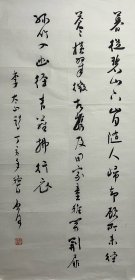 暮從碧山下山月隨人歸却顧所來徑
蒼蒼橫翠微相攜及田家童稚開荆扉
綠竹入幽徑青蘿拂行衣
李太白詩